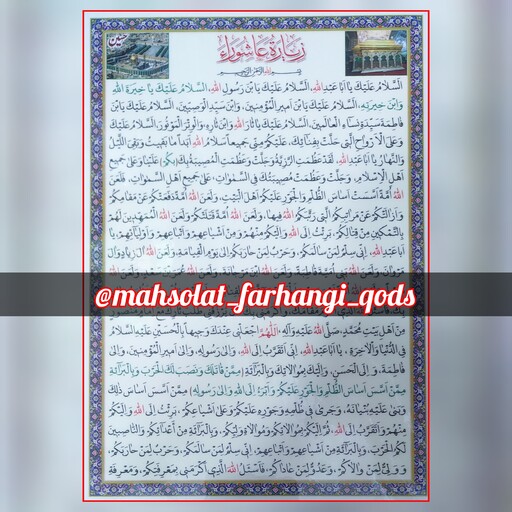 زیارة عاشوراء
بسم الله الرحمن الرحیم
اَلسَّلامُ عَلَیْكَ یا اَبا عَبْدِاللهِ، اَلسَّلامُ عَلَیْكَ یَابْنَ رَسُولِ اللهِ، اَلسَّلامُ عَلَیْكَ یا خِیَرَةَ اللهِ
وَابْنَ خِیَرَتِهِ، اَلسَّلامُ عَلَیْكَ یَابْنَ اَمیرِالْمُؤْمِنینَ، وَابْنَ سَیِّدِ الْوَصِیّینَ، اَلسَّلامُ عَلَیْكَ یَابْنَ
فاطِمَةَ سَیِّدَةِ نِساءِ الْعالَمینَ، اَلسَّلامُ عَلَیْكَ یا ثارَ اللهِ وَابْنَ ثارِهِ، وَالْوِتْرَ الْمَوْتُورَ، اَلسَّلامُ عَلَیْكَ
وَعَلَی الْاَرْواحِ الَّتی حَلَّتْ بِفِنائِكَ، عَلَیْكُمْ مِنّی جَمیعاً سَلامُ اللهِ اَبَداً ما بَقیتُ وَبَقِیَ اللَّیْلُ
وَالنَّهارُ، یا اَبا عَبْدِاللهِ، لَقَدْ عَظُمَتِ الرَّزِیَّةُ، وَجَلَّتْ وَعَظُمَتِ الْمُصیبَةُ بِكَ (بِكُمْ) عَلَیْنا وَعَلی جَمیعِ
اَهْلِ الْاِسْلامِ، وَجَلَّتْ وَعَظُمَتْ مُصیبَتُكَ فِی السَّمٰواتِ، عَلی جَمیعِ اَهْلِ السَّمٰواتِ، فَلَعَنَ
اللهُ اُمَّةً اَسَّسَتْ اَساسَ الظُّلْمِ وَالْجَوْرِ عَلَیْكُمْ اَهْلَ الْبَیْتِ، وَلَعَنَ اللهُ اُمَّةً دَفَعَتْكُمْ عَنْ مَقامِكُمْ
وَاَزالَتْكُمْ عَنْ مَراتِبِكُمُ الَّتی رَتَّبَكُمُ اللهُ فیها، وَلَعَنَ اللهُ اُمَّةً قَتَلَتْكُمْ، وَلَعَنَ اللهُ الْمُمَهِّدینَ لَهُمْ
بِالتَّمْكینِ مِنْ قِتالِكُمْ، بَرِئْتُ اِلَی اللهِ وَاِلَیْكُمْ مِنْهُمْ وَمِنْ اَشْیاعِهِمْ وَاَتْباعِهِمْ وَاَوْلِیائِهِمْ، یا
اَبا عَبْدِاللهِ، اِنّی سِلْمٌ لِمَنْ سالَمَكُمْ، وَحَرْبٌ لِمَنْ حارَبَكُمْ اِلی یَوْمِ الْقِیامَةِ، وَلَعَنَ اللهُ آلَ زِیادٍ وَآلَ
@mahsolat_farhangi_qods
مِنْ اَهْلِ بَیْتِ مُحَمَّدٍ، صَلَّی اللهُ عَلَیْهِ وَآلِهِ، اَللّٰهُمَّ اجْعَلْنی عِنْدَكَ وَجیهاً بِالْحُسَیْنِ عَلَیْهِ السَّلامُ
فِی الدُّنْیا وَالْآخِرَةِ، یا اَبا عَبْدِاللهِ، اِنّی اَتَقَرَّبُ اِلَی اللهِ، وَاِلی رَسُولِهِ، وَاِلی اَمیرِ الْمُؤْمِنینَ، وَاِلی
فاطِمَةَ، وَاِلَی الْحَسَنِ، وَاِلَیْكَ بِمُوالاتِكَ وَبِالْبَرائَةِ (مِمَّنْ قاتَلَكَ وَنَصَبَ لَكَ الْحَرْبَ، وَبِالْبَرائَةِ
مِمَّنْ اَسَّسَ اَساسَ الظُّلْمِ وَالْجَوْرِ عَلَیْكُمْ، وَاَبْرَءُ اِلَی اللهِ وَاِلی رَسُولِهِ) مِمَّنْ اَسَّسَ اَساسَ ذٰلِكَ
وَبَنی عَلَیْهِ بُنْیانَهُ، وَجَری فی ظُلْمِهِ وَجَوْرِهِ عَلَیْكُمْ وَعَلی اَشْیاعِكُمْ، بَرِئْتُ اِلَی اللهِ وَاِلَیْكُمْ
مِنْهُمْ، وَاَتَقَرَّبُ اِلَی اللهِ، ثُمَّ اِلَیْكُمْ بِمُوالاتِكُمْ وَمُوالاةِ وَلِیِّكُمْ، وَبِالْبَرائَةِ مِنْ اَعْدائِكُمْ، وَالنّاصِبینَ
لَكُمُ الْحَرْبَ، وَبِالْبَرائَةِ مِنْ اَشْیاعِهِمْ وَاَتْباعِهِمْ، اِنّی سِلْمٌ لِمَنْ سالَمَكُمْ، وَحَرْبٌ لِمَنْ حارَبَكُمْ،
وَوَلِیٌّ لِمَنْ والاكُمْ، وَعَدُوٌّ لِمَنْ عاداكُمْ، فَاَسْئَلُ اللهَ الَّذی اَكْرَمَنی بِمَعْرِفَتِكُمْ، وَمَعْرِفَةِ